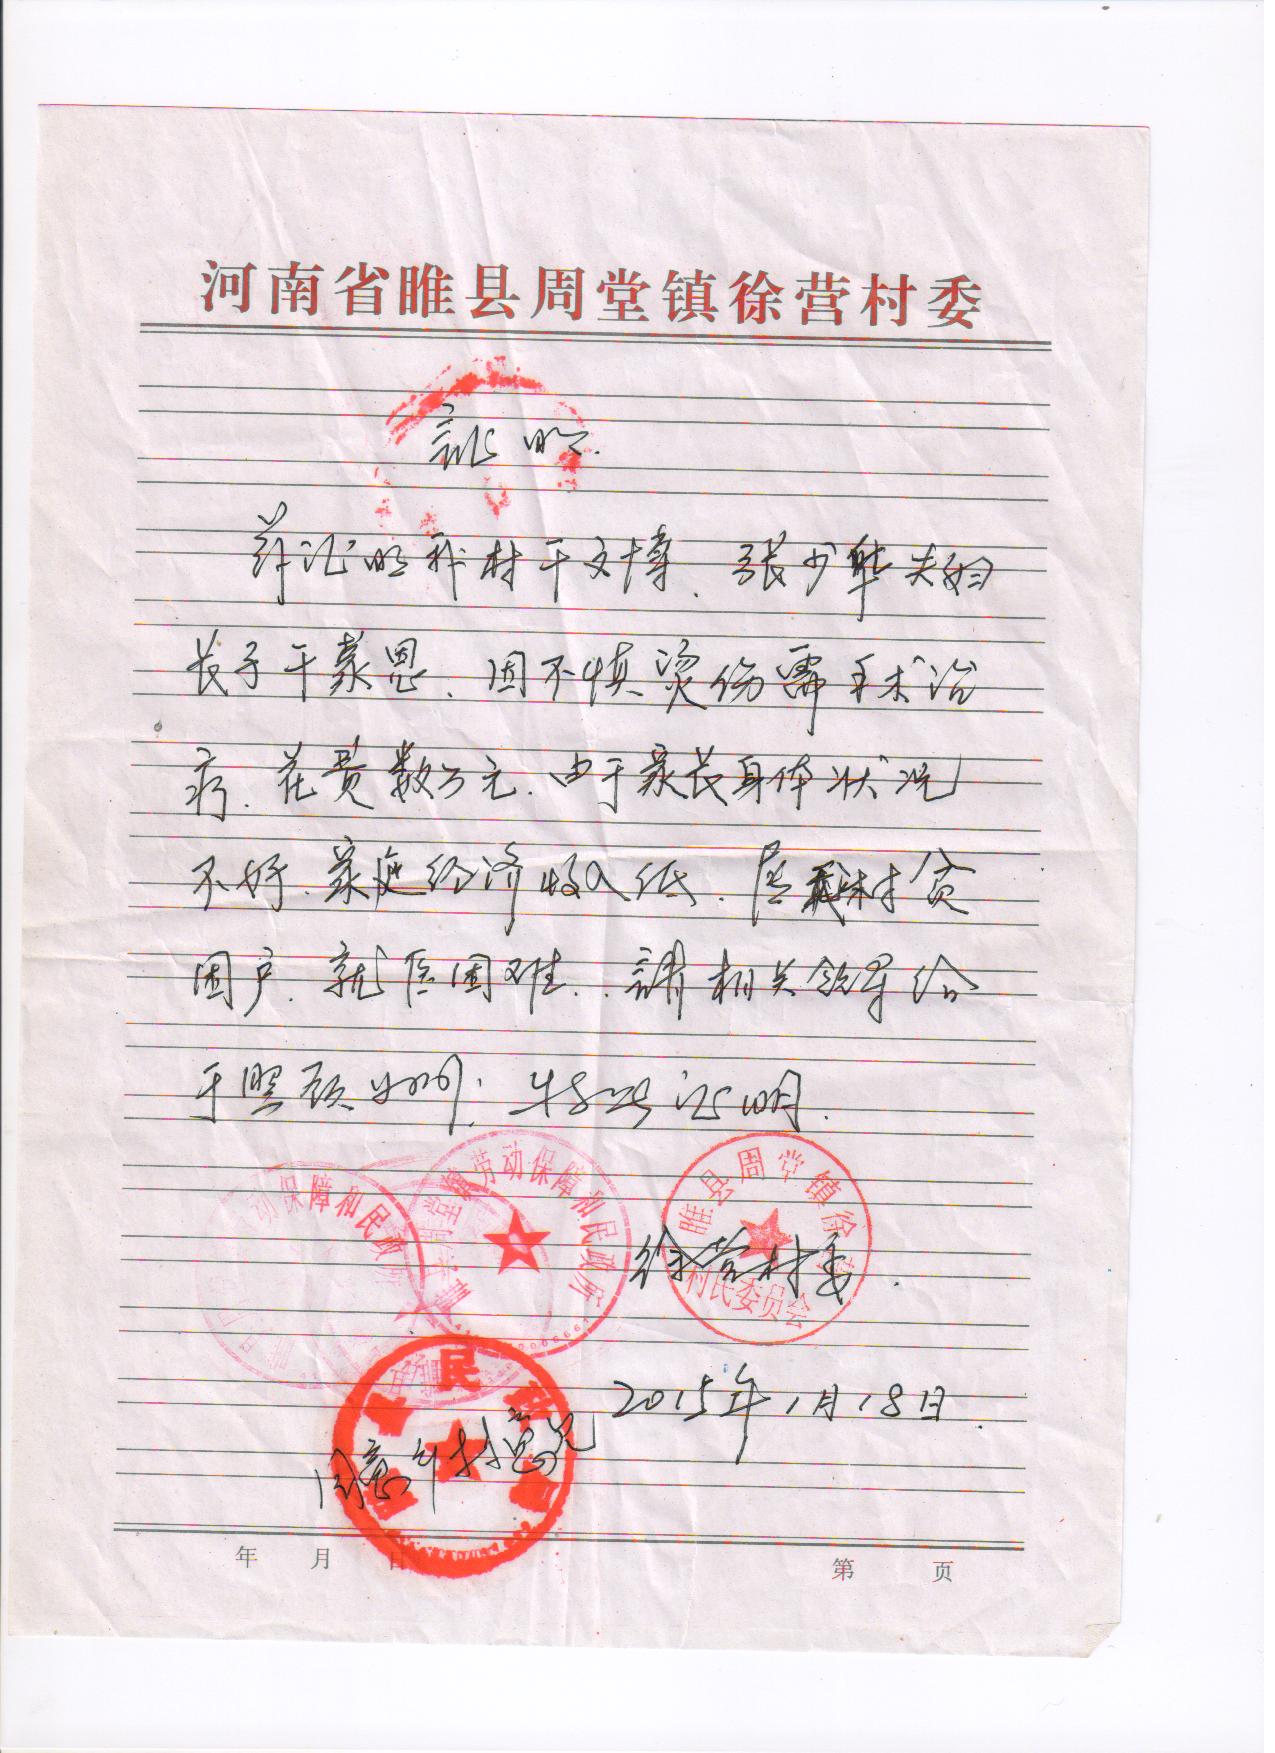 河南省睢县周堂镇徐营村委
证明
兹证明我村干文博、张少华夫妇
长子干蒙恩、因不慎烫伤需手术治
疗、花费数万元、由于家长身体状况
不好、家庭经济收入低、居我村贫
困户、就医困难、请相关领导给
于照顾为盼；特此证明.
劳动保障和民政所
动保障和民政
睢县周堂镇徐
村民委员会
徐营村委.
民
2015年1月18日.
同意村意见
年 月 日
第 页